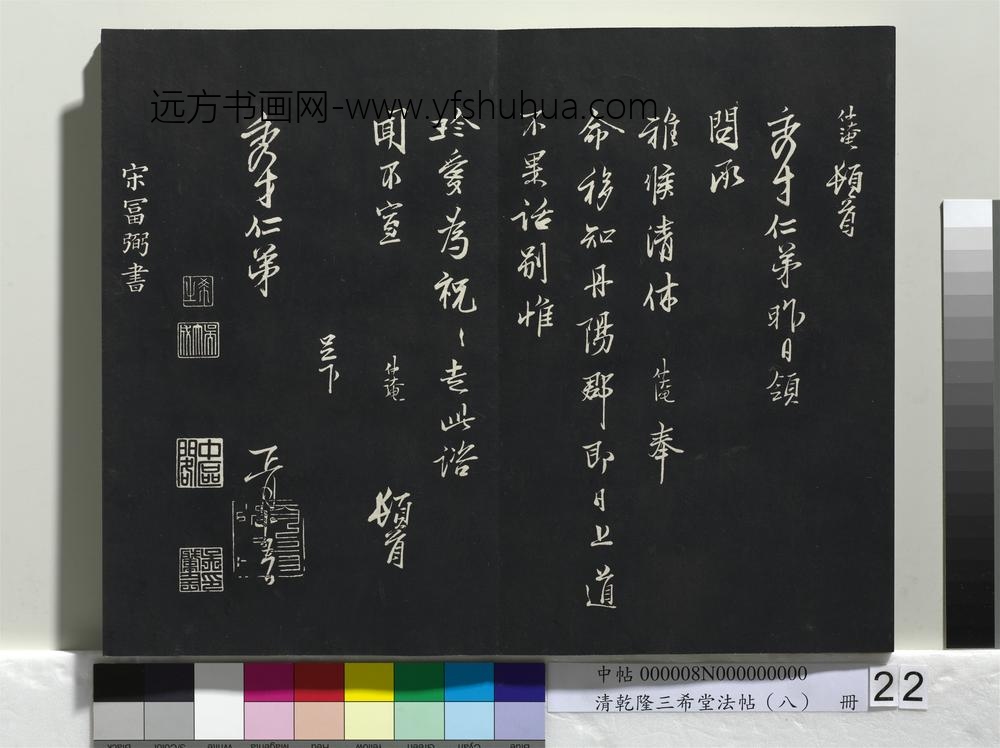 远方书画网-www.yfshuhua.com
仲淹頓首
秀才仁弟昨日領
問承
雅候清休仲淹奉
命移知丹陽郡即日上道
不果話別惟
珍愛為祝〻走此諮
聞不宣仲淹頓首
足下
秀才仁弟 正月
宋富弼書
中帖 000008N000000000
清乾隆三希堂法帖（八） 冊 22
Black 3/Color White Magenta Red Yellow Green Cyan Blue